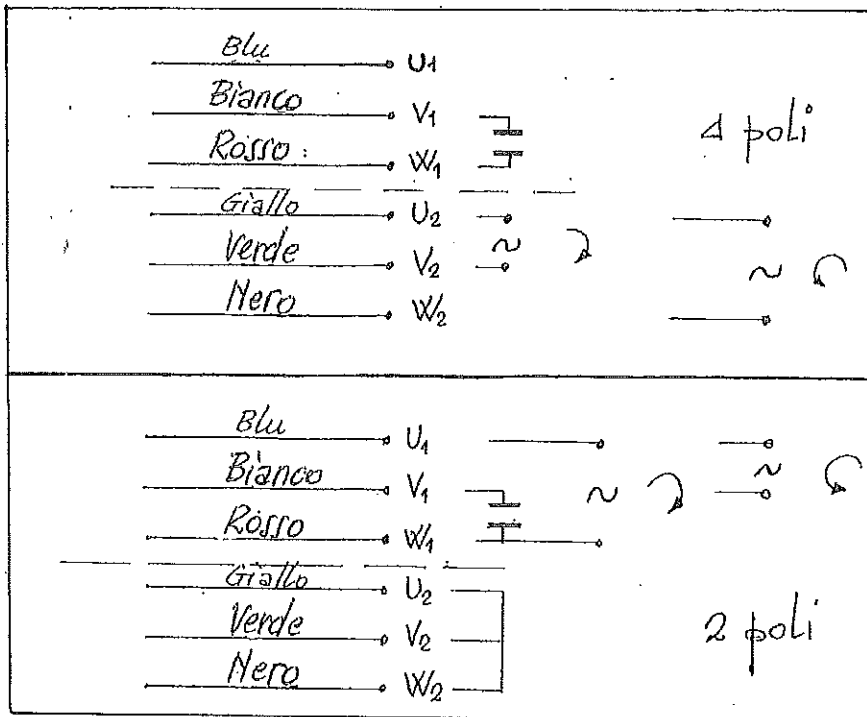 Blu U1
Bianco V1
Rosso : W1
4 poli
Giallo U2
Verde V2 ~ ~
Nero W2
Blu U1
Bianco V1 ~ ~
Rosso W1
Giallo U2
Verde V2
2 poli
Nero W2